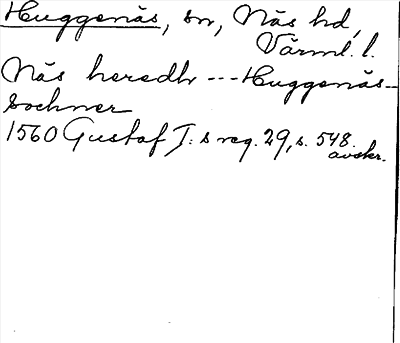 Huggenäs, sn, Näs hd,
Värml. l.
Näs heredh --- Huggenäs-
sochner
1560 Gustaf I: s reg. 29, s. 548.
avskr.